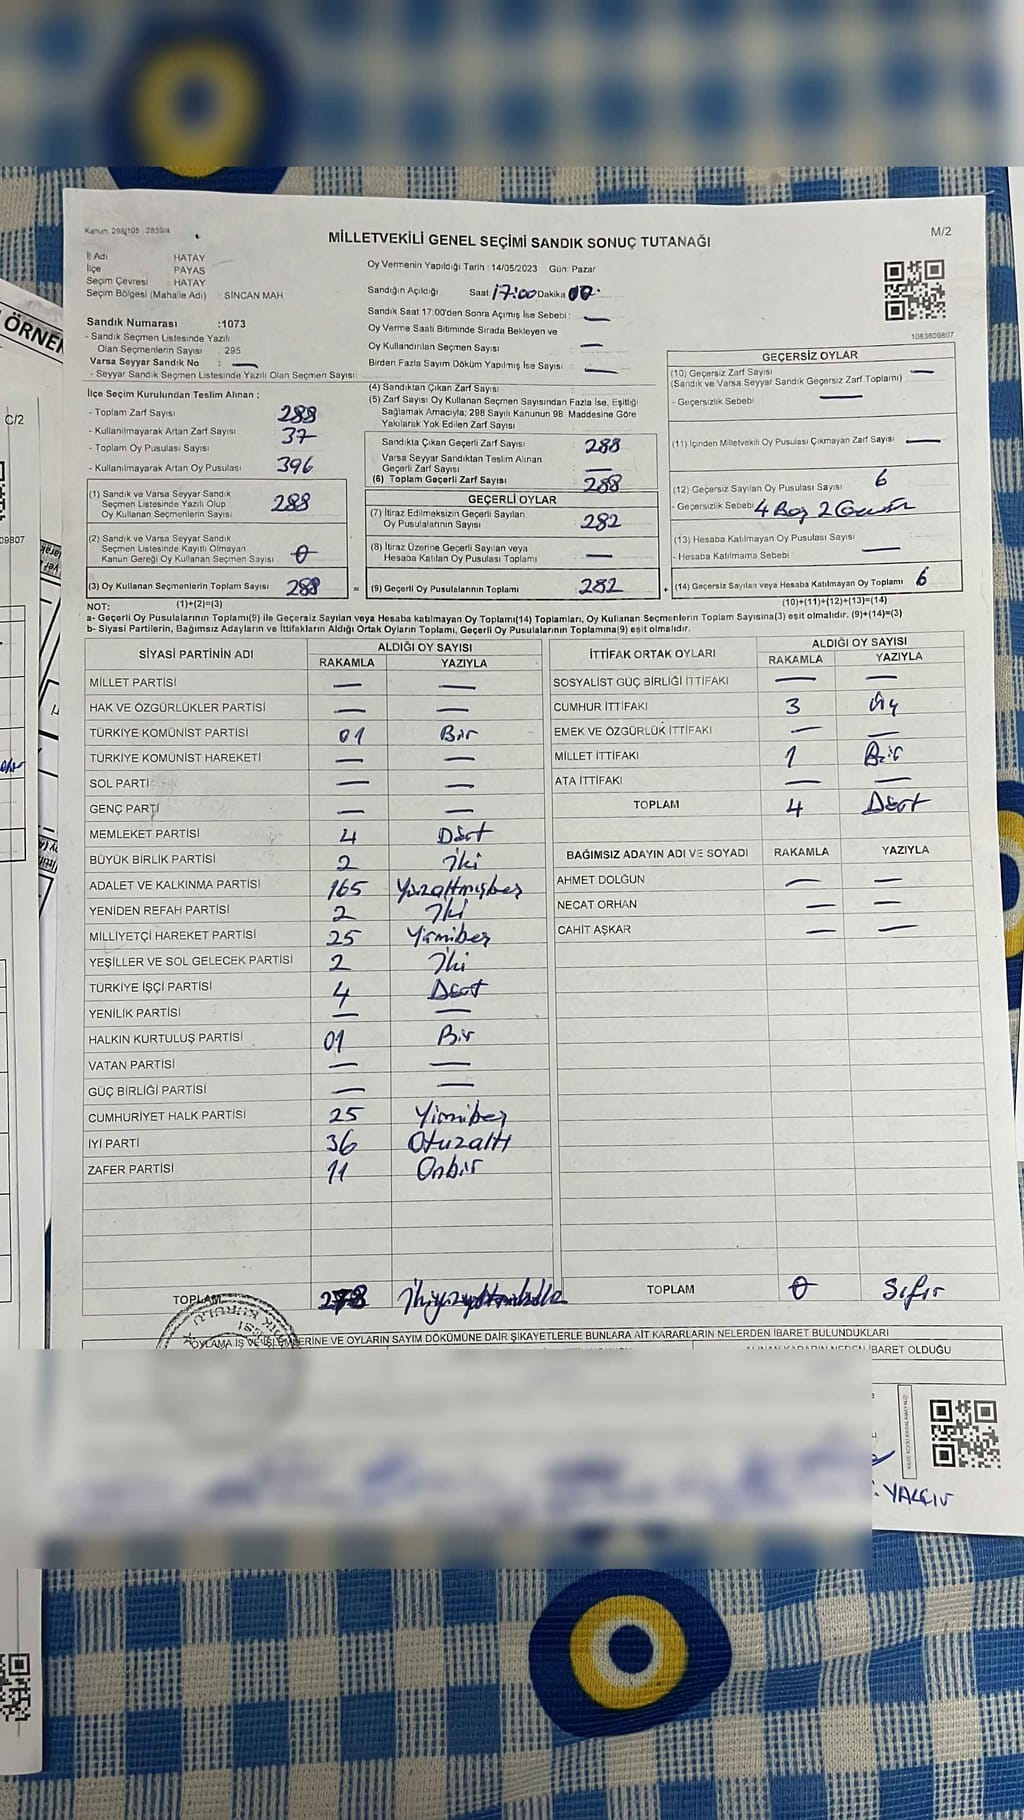 Kanun: 298/105 : 2839/4
MİLLETVEKİLİ GENEL SEÇİMİ SANDIK SONUÇ TUTANAĞI
M/2
İl Adı : HATAY
İlçe : PAYAS
Seçim Çevresi : HATAY
Seçim Bölgesi (Mahalle Adı) : SİNCAN MAH
Oy Vermenin Yapıldığı Tarih : 14/05/2023 Gün: Pazar
Sandığın Açıldığı Saat: 17:00 Dakika 00
Sandık Saat 17:00'den Sonra Açımış İse Sebebi : —
Oy Verme Saati Bitiminde Sırada Bekleyen ve
Oy Kullandırılan Seçmen Sayısı : —
Birden Fazla Sayım Döküm Yapılmış İse Sayısı : —
Sandık Numarası :1073
- Sandık Seçmen Listesinde Yazılı
Olan Seçmenlerin Sayısı : 295
Varsa Seyyar Sandık No : —
- Seyyar Sandık Seçmen Listesinde Yazılı Olan Seçmen Sayısı:
1083809807
İlçe Seçim Kurulundan Teslim Alınan ;
- Toplam Zarf Sayısı 288
- Kullanılmayarak Artan Zarf Sayısı 37
- Toplam Oy Pusulası Sayısı
- Kullanılmayarak Artan Oy Pusulası 396
(1) Sandık ve Varsa Seyyar Sandık
Seçmen Listesinde Yazılı Olup
Oy Kullanan Seçmenlerin Sayısı 288
(2) Sandık ve Varsa Seyyar Sandık
Seçmen Listesinde Kayıtlı Olmayan
Kanun Gereği Oy Kullanan Seçmen Sayısı 0
(3) Oy Kullanan Seçmenlerin Toplam Sayısı 288
(1)+(2)=(3)
(4) Sandıktan Çıkan Zarf Sayısı
(5) Zarf Sayısı Oy Kullanan Seçmen Sayısından Fazla İse, Eşitliği
Sağlamak Amacıyla; 298 Sayılı Kanunun 98. Maddesine Göre
Yakılarak Yok Edilen Zarf Sayısı
Sandıkla Çıkan Geçerli Zarf Sayısı 288
Varsa Seyyar Sandıktan Teslim Alınan
Geçerli Zarf Sayısı —
(6) Toplam Geçerli Zarf Sayısı 288
GEÇERLİ OYLAR
(7) İtiraz Edilmeksizin Geçerli Sayılan
Oy Pusulalarının Sayısı 282
(8) İtiraz Üzerine Geçerli Sayılan veya
Hesaba Katılan Oy Pusulası Toplamı —
= (9) Geçerli Oy Pusulalarının Toplamı 282
GEÇERSİZ OYLAR
(10) Geçersiz Zarf Sayısı —
(Sandık ve Varsa Seyyar Sandık Geçersiz Zarf Toplamı)
- Geçersizlik Sebebi : —
(11) İçinden Milletvekili Oy Pusulası Çıkmayan Zarf Sayısı —
(12) Geçersiz Sayılan Oy Pusulası Sayısı 6
- Geçersizlik Sebebi : 4 Boş 2
(13) Hesaba Katılmayan Oy Pusulası Sayısı
- Hesaba Katılmama Sebebi : —
+ (14) Geçersiz Sayılan veya Hesaba Katılmayan Oy Toplamı 6
(10)+(11)+(12)+(13)=(14)
NOT:
a- Geçerli Oy Pusulalarının Toplamı(9) ile Geçersiz Sayılan veya Hesaba katılmayan Oy Toplamı(14) Toplamları, Oy Kullanan Seçmenlerin Toplam Sayısına(3) eşit olmalıdır. (9)+(14)=(3)
b- Siyasi Partilerin, Bağımsız Adayların ve İttifakların Aldığı Ortak Oyların Toplamı, Geçerli Oy Pusulalarının Toplamına(9) eşit olmalıdır.
SİYASİ PARTİNİN ADI
ALDIĞI OY SAYISI
RAKAMLA YAZIYLA
MİLLET PARTİSİ — —
HAK VE ÖZGÜRLÜKLER PARTİSİ — —
TÜRKİYE KOMÜNİST PARTİSİ 01 Bir
TÜRKİYE KOMÜNİST HAREKETİ — —
SOL PARTİ — —
GENÇ PARTİ — —
MEMLEKET PARTİSİ 4 Dört
BÜYÜK BİRLİK PARTİSİ 2 İki
ADALET VE KALKINMA PARTİSİ 165 Yüzaltmışbeş
YENİDEN REFAH PARTİSİ 2 İki
MİLLİYETÇİ HAREKET PARTİSİ 25 Yirmibeş
YEŞİLLER VE SOL GELECEK PARTİSİ 2 İki
TÜRKİYE İŞÇİ PARTİSİ 4 Dört
YENİLİK PARTİSİ — —
HALKIN KURTULUŞ PARTİSİ 01 Bir
VATAN PARTİSİ — —
GÜÇ BİRLİĞİ PARTİSİ — —
CUMHURİYET HALK PARTİSİ 25 Yirmibeş
İYİ PARTİ 36 Otuzaltı
ZAFER PARTİSİ 11 Onbir
TOPLAM 278
İTTİFAK ORTAK OYLARI
ALDIĞI OY SAYISI
RAKAMLA YAZIYLA
SOSYALİST GÜÇ BİRLİĞİ İTTİFAKI — —
CUMHUR İTTİFAKI 3 Üç
EMEK VE ÖZGÜRLÜK İTTİFAKI — —
MİLLET İTTİFAKI 1 Bir
ATA İTTİFAKI — —
TOPLAM 4 Dört
BAĞIMSIZ ADAYIN ADI VE SOYADI RAKAMLA YAZIYLA
AHMET DOLĞUN — —
NECAT ORHAN — —
CAHİT AŞKAR — —
TOPLAM 0 Sıfır
OYLAMA İŞ VE İŞLEMLERİNE VE OYLARIN SAYIM DÖKÜMÜNE DAİR ŞİKAYETLERLE BUNLARA AİT KARARLARIN NELERDEN İBARET BULUNDUKLARI
ALINAN KARARIN NEDEN İBARET OLDUĞU
YALÇIN
ÖRNE
C/2
09807